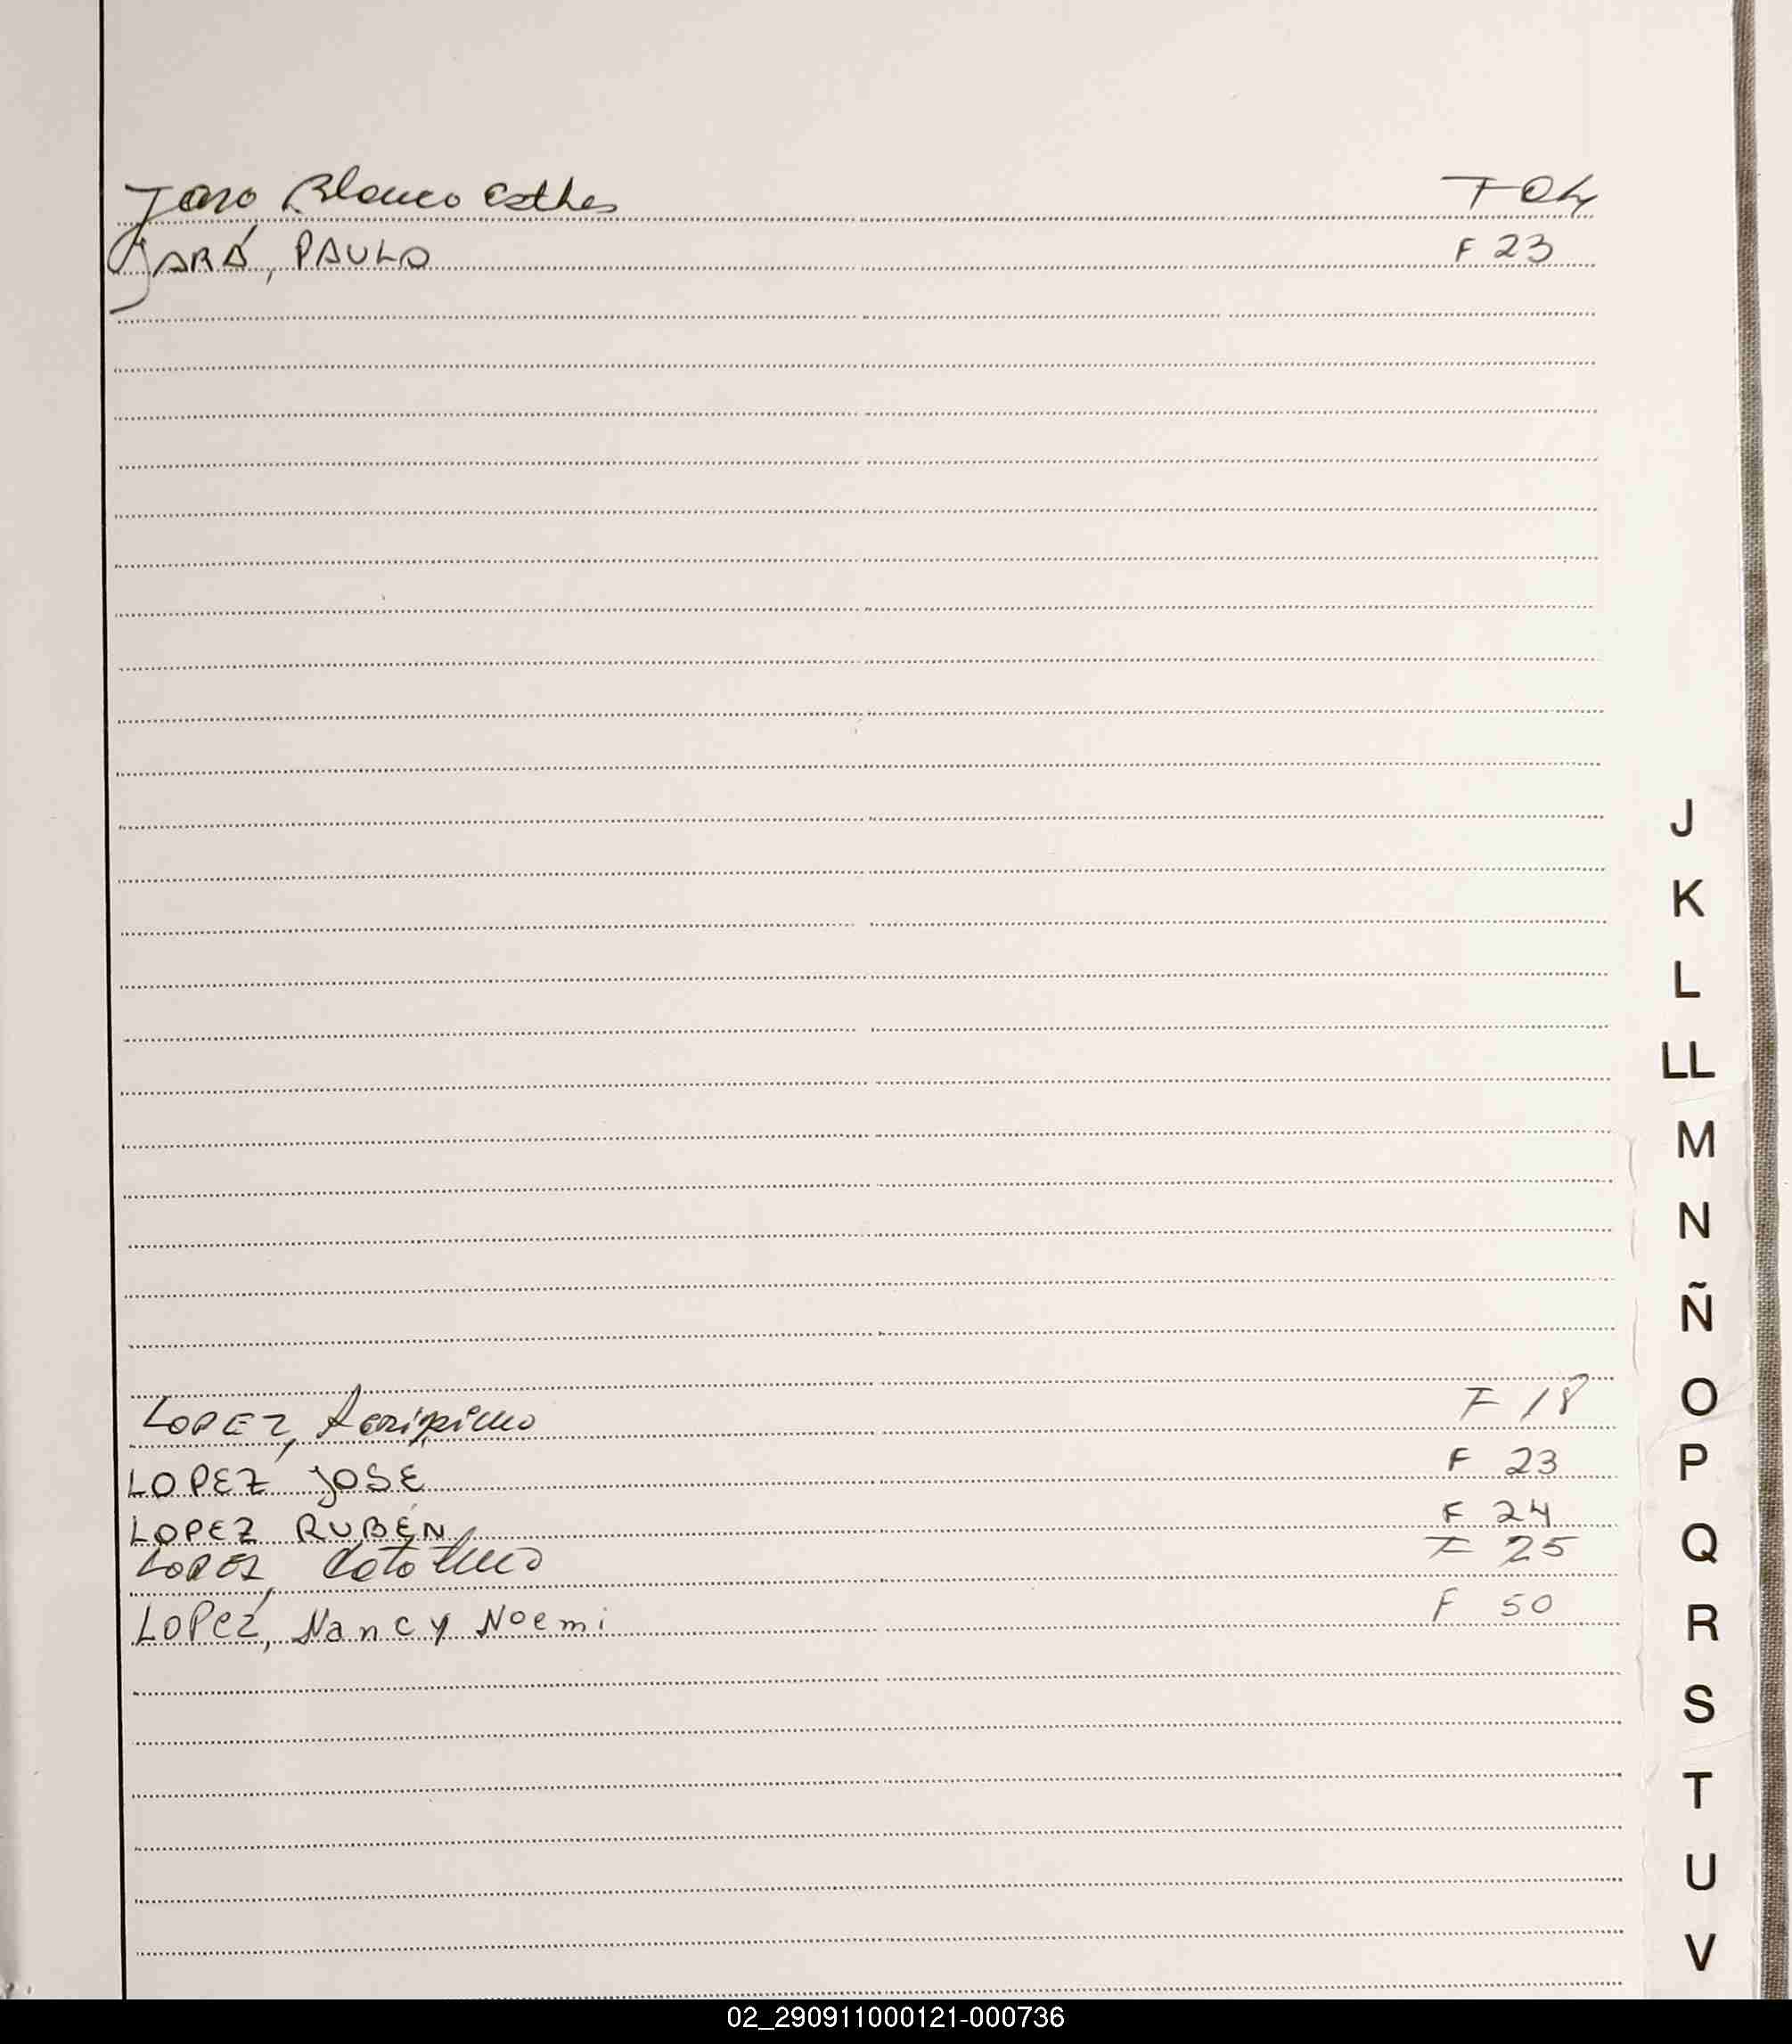 Jaro Blanco Esther F 04
JARÁ, PAULO F 23
J
K
L
LL
M
N
Ñ
O
P
Q
R
S
T
U
V
LOPEZ, F 18
LOPEZ JOSE F 23
LOPEZ RUBÉN F 24
LOPEZ, F 25
LOPez, Nancy Noemi F 50
02_290911000121-000736